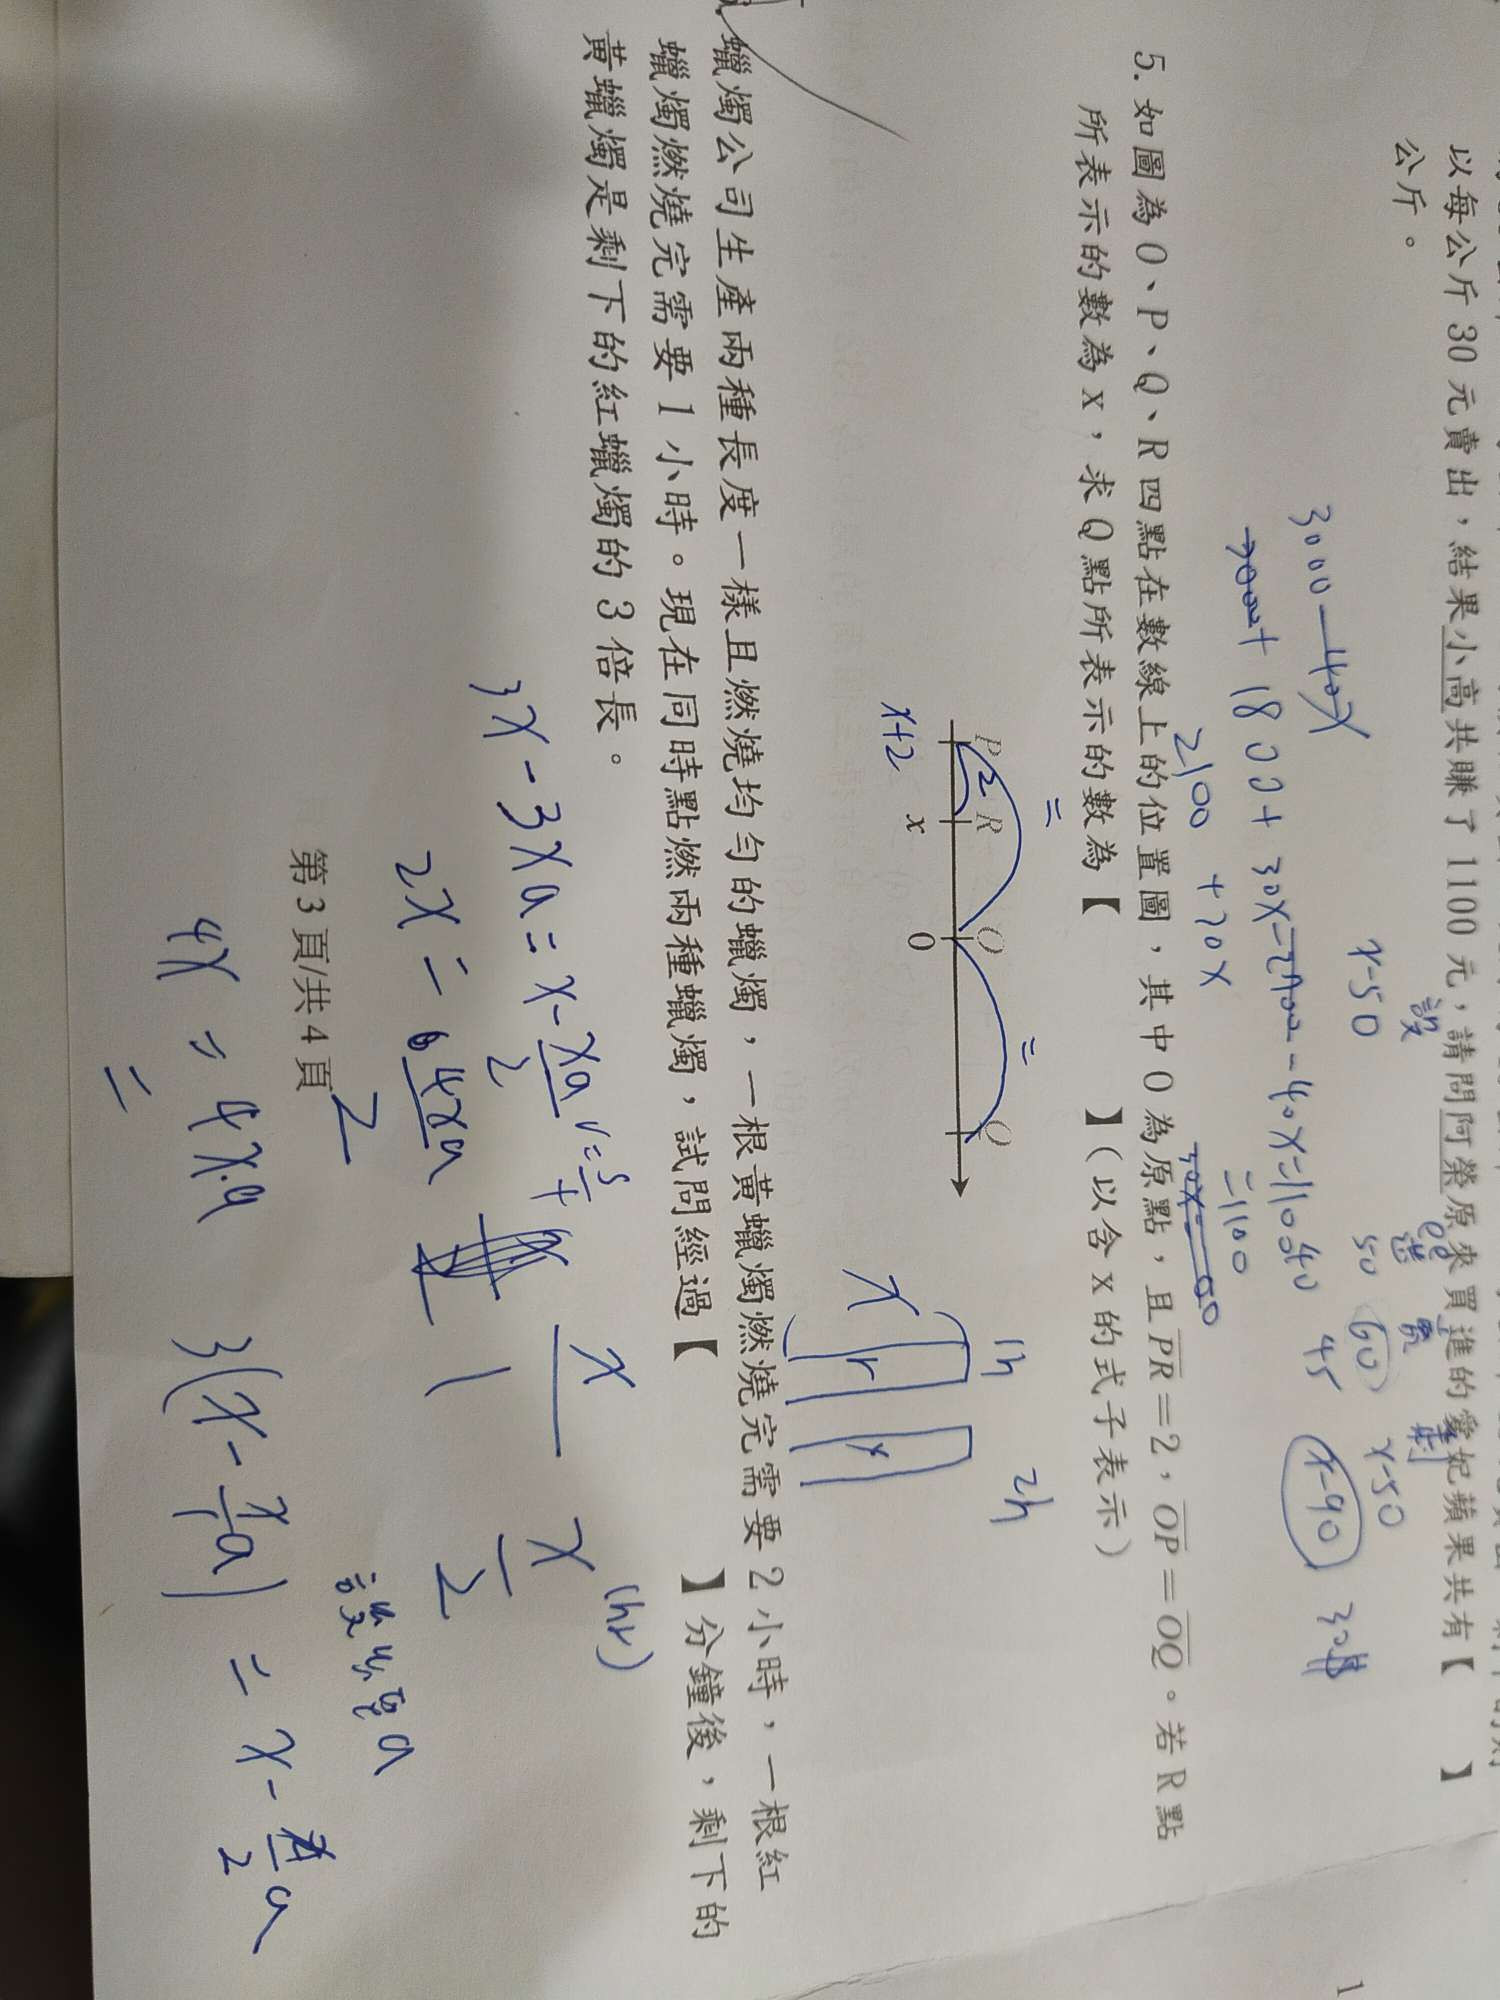 以每公斤 30 元賣出，結果小高共賺了 1100 元，請問阿榮原來買進的愛妃蘋果共有【 】
公斤。
設
x-50
50
60
45
x-50
x-90
3000-40x
+ 1800+ 30x
2100 +20x
=1100
5. 如圖為 O、P、Q、R 四點在數線上的位置圖，其中 O 為原點，且 PR=2，OP=OQ。若 R 點
所表示的數為 x，求 Q 點所表示的數為【 】（以含 x 的式子表示）
=
=
P 2 R O Q
x 0
x+2
1h 2h
x r y
蠟燭公司生產兩種長度一樣且燃燒均勻的蠟燭，一根黃蠟燭燃燒完需要 2 小時，一根紅
蠟燭燃燒完需要 1 小時。現在同時點燃兩種蠟燭，試問經過【 】分鐘後，剩下的
黃蠟燭是剩下的紅蠟燭的 3 倍長。
x/1 x/2 (hr)
3x-3xa=x-xa/2
2x=
設必要a
第 3 頁/共 4 頁
4x = 4x·a
=
3(x-x/1 a) = x-x/2 a
1